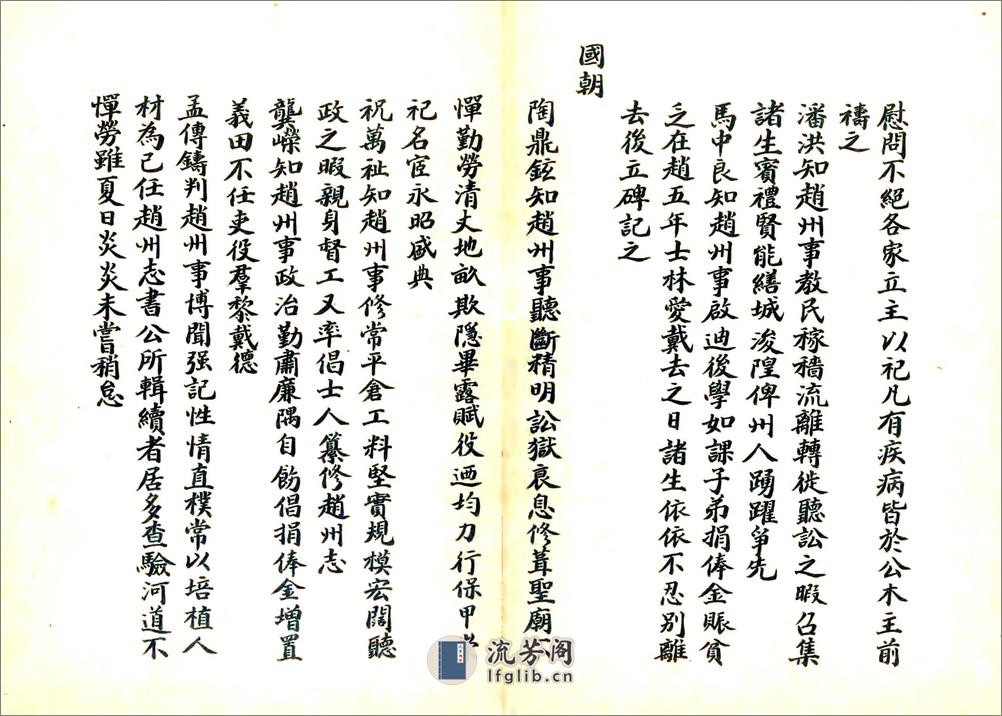 慰問不絕各家立主以祀凡有疾病皆於公木主前
禱之
潘洪知趙州事教民稼穡流離轉徙聽訟之暇召集
諸生賓禮賢能繕城浚隍俾州人踴躍爭先
馬中良知趙州事啟迪後學如課子弟捐俸金賑貧
乏在趙五年士林愛戴去之日諸生依依不忍別離
去後立碑記之
國朝
陶鼎鉉知趙州事聽斷精明訟獄衰息修葺聖廟不
憚勤勞清丈地畝欺隱畢露賦役迺均力行保甲
祀名宦永昭盛典
祝萬祉知趙州事修常平倉工料堅實規模宏闊聽
政之暇親身督工又率倡士人纂修趙州志
龔嶸知趙州事政治勤肅廉隅自飭倡捐俸金增置
義田不任吏役羣黎戴德
孟傳鑄判趙州事博聞强記性情直樸常以培植人
材為己任趙州志書公所輯續者居多查驗河道不
憚勞雖夏日炎炎未嘗稍怠
流芳閣
lfglib.cn